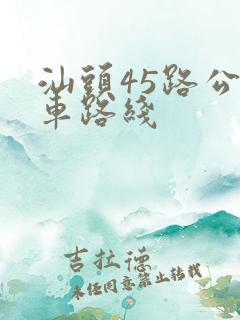 汕頭45路公
車路綫
吉拉德
未經同意禁止轉載